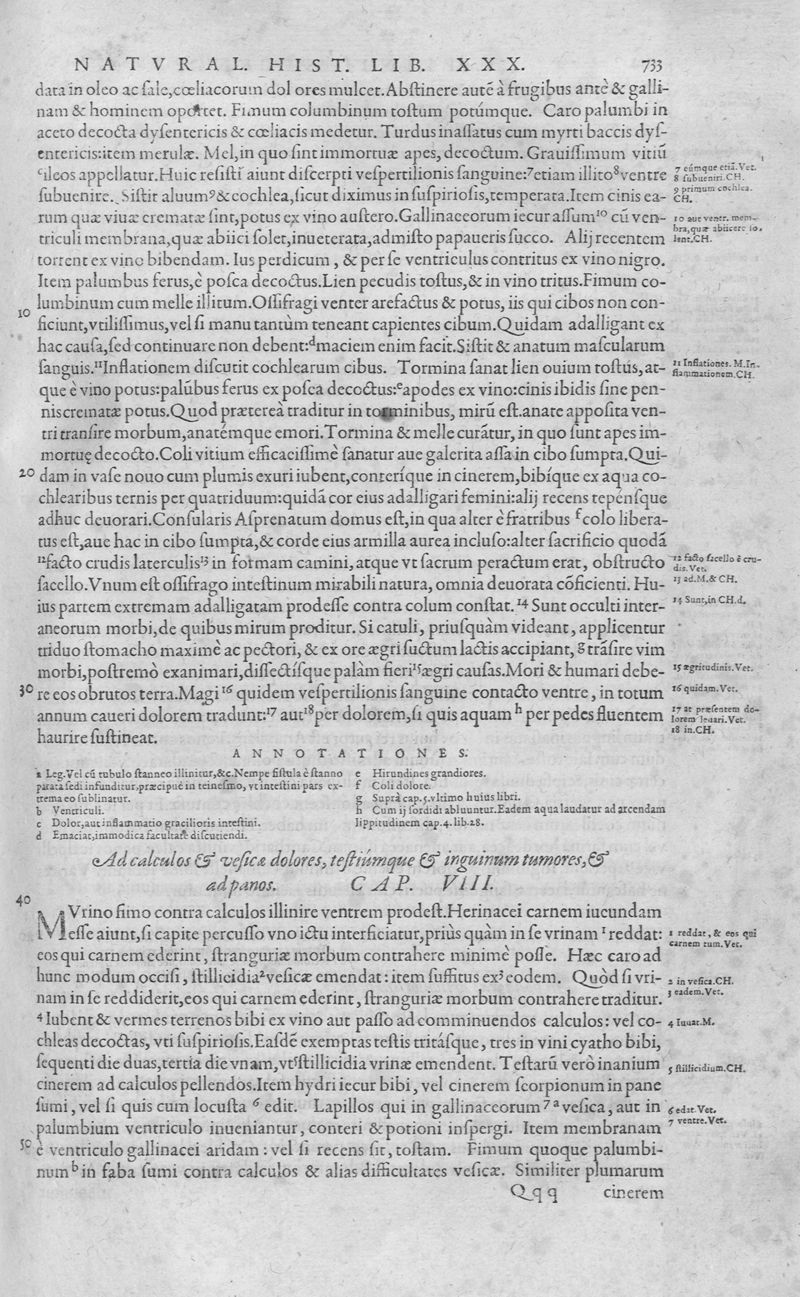 NATVRAL. HIST. LIB. XXX. 733
data in oleo ac ſale,cœliacorum dolores mulcet.Abſtinere autē à frugibus antè & galli-
nam & hominem oportet. Fimum columbinum toſtum potúmque. Caro palumbi in
aceto decocta dyſentericis & cœliacis medetur. Turdus inaſſatus cum myrti baccis dyſ-
entericis:item merulæ. Mel,in quo ſint immortuæ apes, decoctum. Grauiſſimum vitiū
ᶜileos appellatur.Huic reſiſti aiunt diſcerpti veſpertilionis ſanguine:⁷etiam illito⁸ventre
ſubuenire. Siſtit aluum⁹&cochlea,ſicut diximus in ſuſpirioſis,temperata.Item cinis ea-
rum quæ viuæ crematæ ſint,potus ex vino auſtero.Gallinaceorum iecur aſſum¹⁰ cū ven-
triculi membrana,quæ abiici ſolet,inueterata,admiſto papaueris ſucco. Alij recentem
torrent ex vino bibendam. Ius perdicum , & per ſe ventriculus contritus ex vino nigro.
Item palumbus ferus,è poſca decoctus.Lien pecudis toſtus,& in vino tritus.Fimum co-
lumbinum cum melle illitum.Oſſifragi venter arefactus & potus, iis qui cibos non con-
10
ficiunt,vtiliſſimus,vel ſi manu tantùm teneant capientes cibum.Quidam adalligant ex
hac cauſa,ſed continuare non debent:ᵈmaciem enim facit.Siſtit & anatum maſcularum
ſanguis.¹¹Inflationem diſcutit cochlearum cibus. Tormina ſanat lien ouium toſtus,at-
que è vino potus:palūbus ferus ex poſca decoctus:ᵉapodes ex vino:cinis ibidis ſine pen-
nis crematæ potus.Quod prætereà traditur in torminibus, mirū eſt.anate appoſita ven-
tri tranſire morbum,anatémque emori.Tormina & melle curātur, in quo ſunt apes im-
mortuę decocto.Coli vitium efficaciſſimè ſanatur aue galerita aſſa in cibo ſumpta.Qui-
20 dam in vaſe nouo cum plumis exuri iubent,conteríque in cinerem,bibíque ex aqua co-
chlearibus ternis per quatriduum:quidā cor eius adalligari femini:alij recens tepénſque
adhuc deuorari.Conſularis Aſprenatum domus eſt,in qua alter è fratribus ᶠcolo libera-
tus eſt,aue hac in cibo ſumpta,& corde eius armilla aurea incluſo:alter ſacrificio quodā
¹²facto crudis laterculis¹³ in formam camini,atque vt ſacrum peractum erat, obſtructo
ſacello.Vnum eſt oſſifrago inteſtinum mirabili natura, omnia deuorata cōficienti. Hu-
ius partem extremam adalligatam prodeſſe contra colum conſtat.¹⁴ Sunt occulti inter-
aneorum morbi,de quibus mirum proditur. Si catuli, priuſquàm videant, applicentur
triduo ſtomacho maximè ac pectori, & ex ore ægri ſuctum lactis accipiant, ᵍtrāſire vim
morbi,poſtremò exanimari,diſſectíſque palàm fieri¹⁵ægri cauſas.Mori & humari debe-
30 re eos obrutos terra.Magi ¹⁶ quidem veſpertilionis ſanguine contacto ventre , in totum
annum caueri dolorem tradunt:¹⁷ aut¹⁸per dolorem,ſi quis aquam ʰ per pedes fluentem
haurire ſuſtineat.
7 eúmque etiā.Vet.
8 ſubueniri.CH.
9 primum cochlea.
CH.
10 aut ventr. mem-
bra,quæ abiicere ſo-
lent.CH.
11 Inflationes. M.In-
flammationem.CH.
12 facto ſacello è cru-
dis.Vet.
13 ad.M.& CH.
14 Sunt,in CH.d.
15 ægritudinis.Vet.
16 quidam.Vet.
17 at præſentem do-
lorem leuari.Vet.
18 in.CH.
ANNOTATIONES.
a Leg.Vel cū tubulo ſtanneo illinitur,&c.Nempe fiſtula è ſtanno
parata ſedi infunditur,præcipuè in teineſmo, vt inteſtini pars ex-
trema eo ſublinatur.
b Ventriculi.
c Dolor,aut inflammatio gracilioris inteſtini.
d Emaciat,immodica facultate diſcutiendi.
e Hirundines grandiores.
f Coli dolore.
g Suprà cap.5.vltimo huius libri.
h Cum ij ſordidi abluuntur.Eadem aqua laudatur ad arcendam
lippitudinem cap.4.lib.28.
Ad calculos & veſicæ dolores, teſtiúmque & inguinum tumores,&
ad panos. CAP. VIII.
40
MVrino fimo contra calculos illinire ventrem prodeſt.Herinacei carnem iucundam
eſſe aiunt,ſi capite percuſſo vno ictu interficiatur,priùs quàm in ſe vrinam ¹ reddat:
eos qui carnem ederint, ſtranguriæ morbum contrahere minimè poſſe. Hæc caro ad
hunc modum occiſi, ſtillicidia²veſicæ emendat : item ſuffitus ex³eodem. Quòd ſi vri-
nam in ſe reddiderit,eos qui carnem ederint, ſtranguriæ morbum contrahere traditur.
⁴Iubent & vermes terrenos bibi ex vino aut paſſo ad comminuendos calculos: vel co-
chleas decoctas, vti ſuſpirioſis.Eaſdē exemptas teſtis tritáſque, tres in vini cyatho bibi,
ſequenti die duas,tertia die vnam,vt⁵ſtillicidia vrinæ emendent. Teſtarū verò inanium
cinerem ad calculos pellendos.Item hydri iecur bibi, vel cinerem ſcorpionum in pane
ſumi , vel ſi quis cum locuſta ⁶ edit. Lapillos qui in gallinaceorum⁷ᵃveſica, aut in
palumbium ventriculo inueniantur, conteri & potioni inſpergi. Item membranam
50 è ventriculo gallinacei aridam : vel ſi recens ſit, toſtam. Fimum quoque palumbi-
num ᵇ in faba ſumi contra calculos & alias difficultates veſicæ. Similiter plumarum
Qqq cinerem
1 reddat, & eos qui
carnem tum.Vet.
2 in veſica.CH.
3 eadem.Vet.
4 Iuuat.M.
5 ſtillicidium.CH.
6 edat.Vet.
7 ventre.Vet.